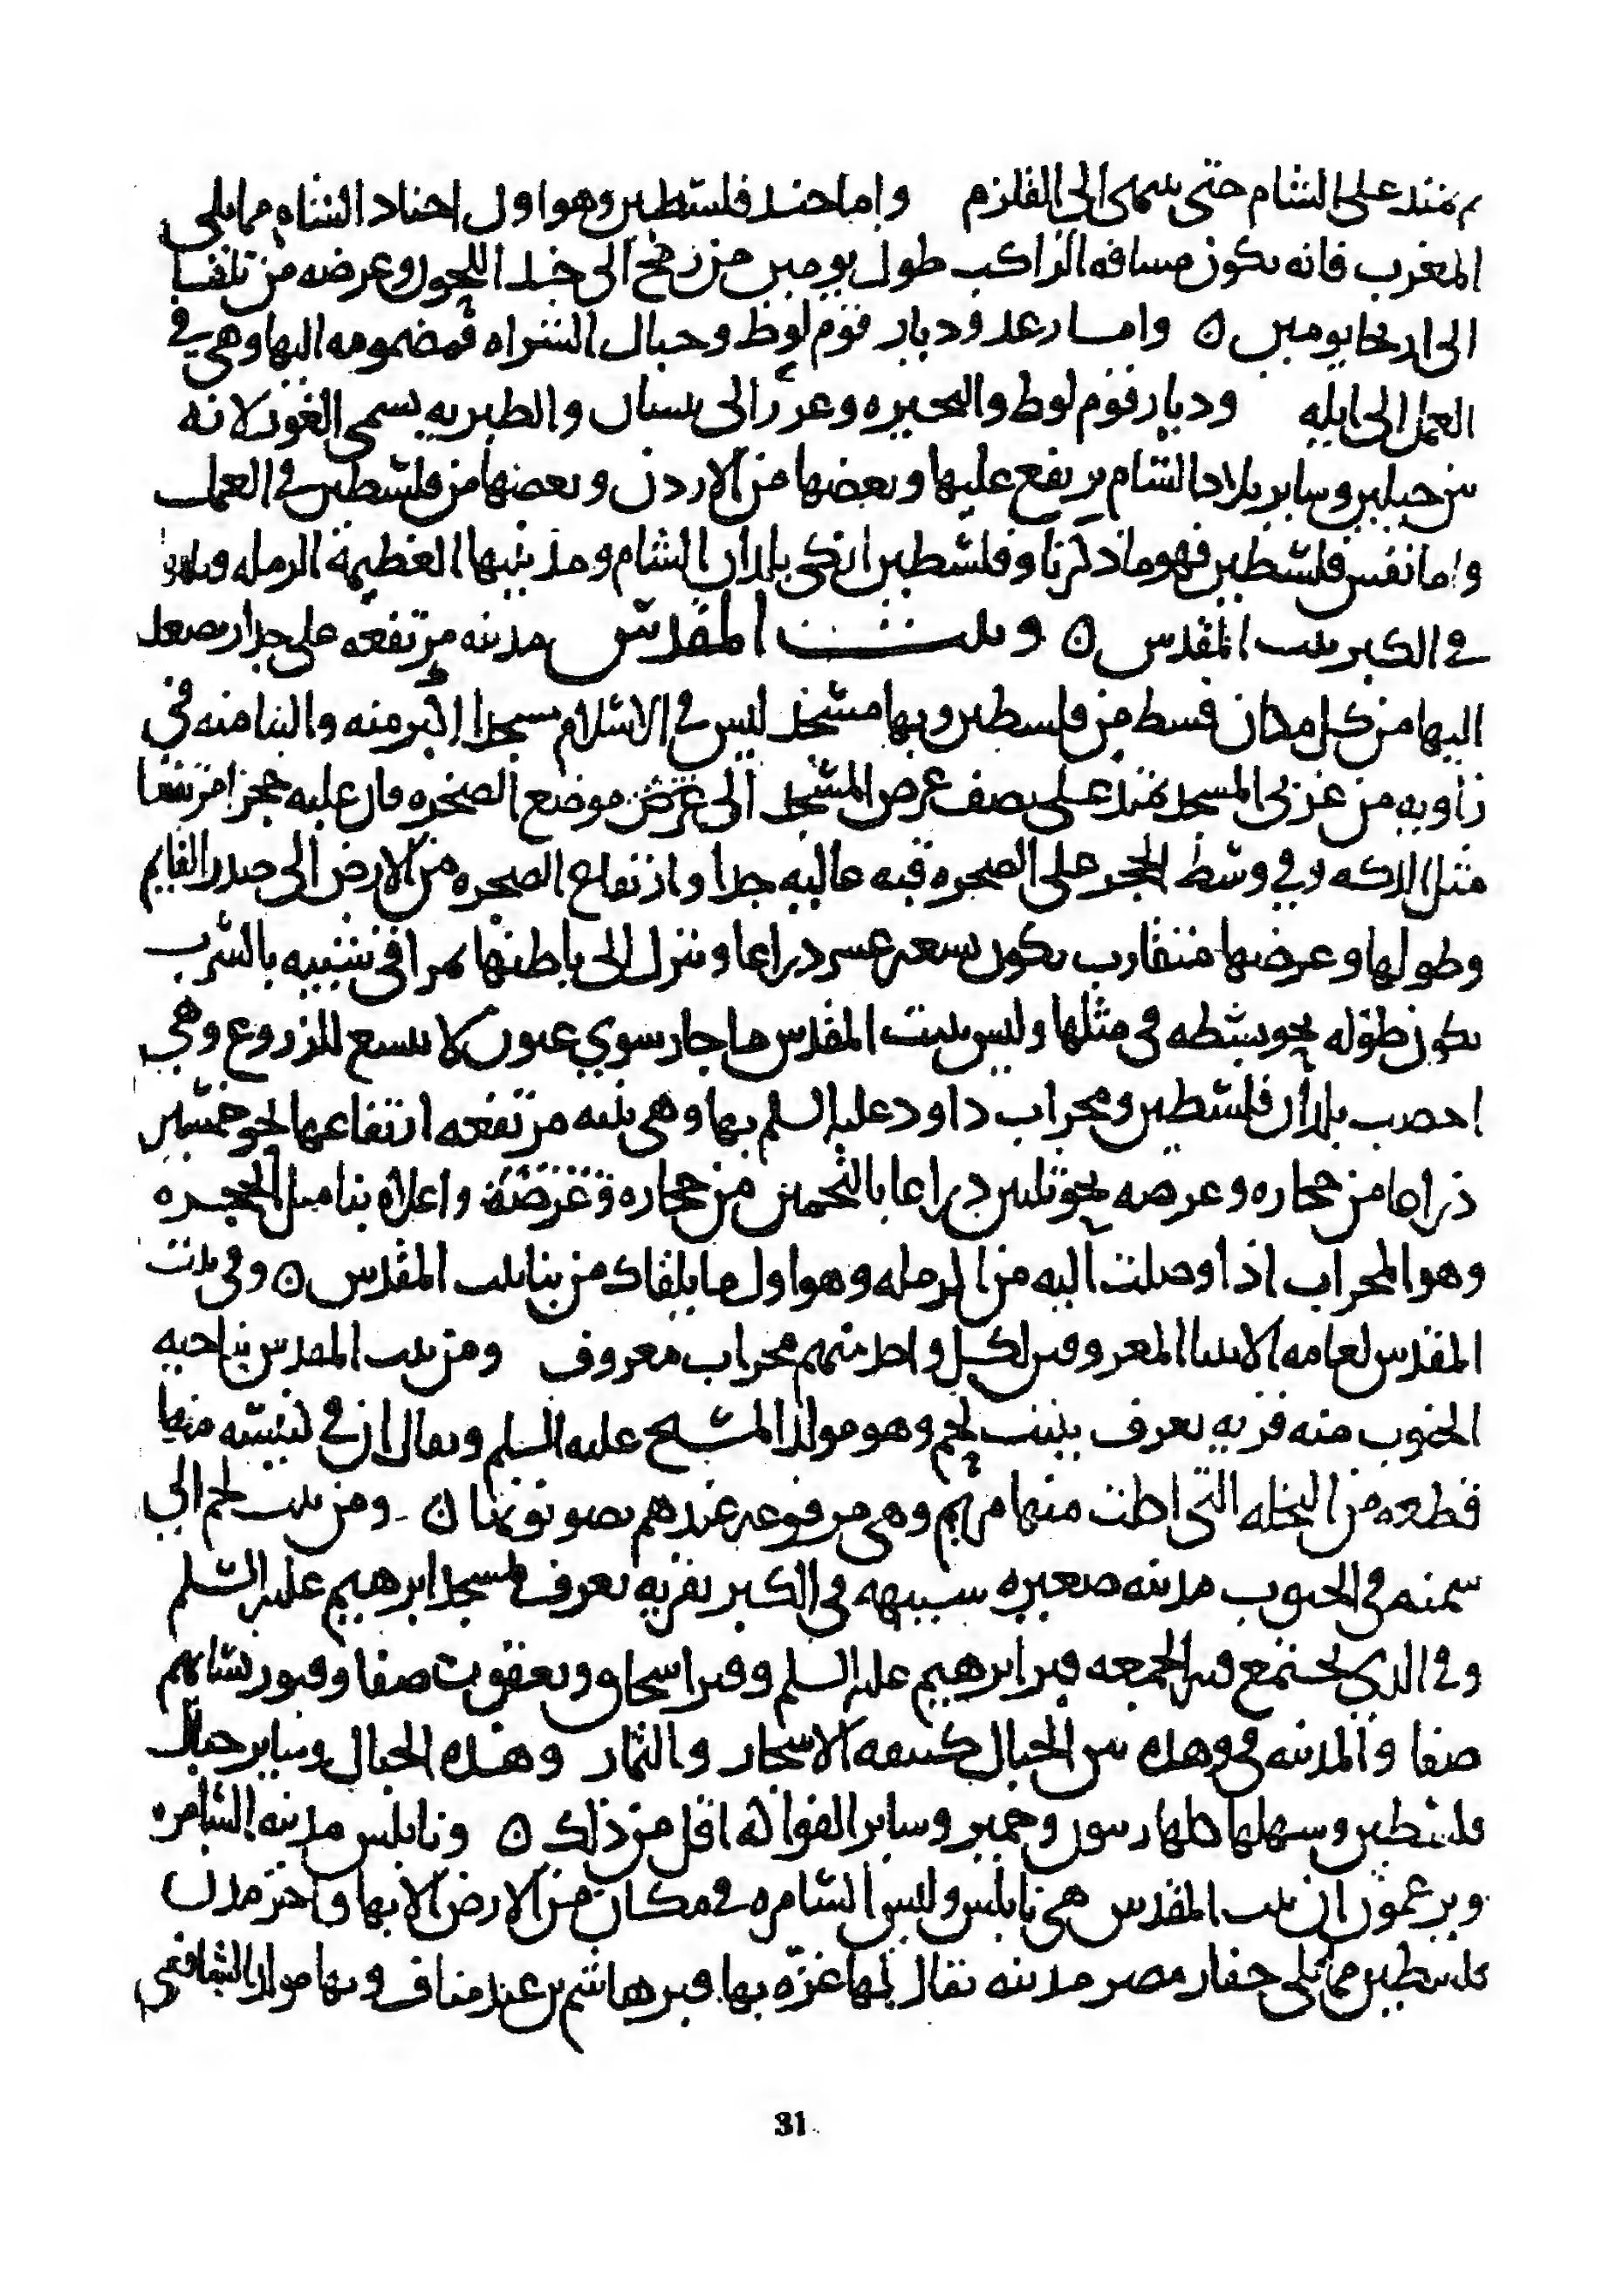 ثم يمتد على الشام حتى ينتهى الى القلزم واما جند فلسطين وهو اول اجناد الشام مما يلى
المغرب فانه يكون مسافه الراكب طول يومين من رفح الى حد اللجون وعرضه من يافا
الى اريحا يومين ن واما زغر وديار قوم لوط وجبال الشراه فمضمومه اليها وهى في
العمل الى ايله وديار قوم لوط والبحيره وغر الى بيسان والطبريه يسمى الغور لانه
بين جبلين وساير بلاد الشام يرتفع عليها وبعضها من الاردن وبعضها من فلسطين في العمل
واما نفس فلسطين فهو ما ذكرنا وفلسطين ازكى بلدان الشام ومدينتها العظيمة الرمله
في الكبر بيت المقدس ن وبيت المقدس مدينه مرتفعه على جبال يصعد
اليها من كل مكان قسط من فلسطين وبها مسجد ليس في الاسلام مسجدا اكبر منه والبنا منه في
زاويه من غربى المسجد يمتد على نصف عرض المسجد الى عرض موضع الصخره فان عليه حجرا مرتفعا
مثل الدكه وفي وسط الحجر على الصخره قبه عاليه جدا وارتفاع الصخره من الارض الى صدر القايم
وطولها وعرضها متقارب يكون بسعه عشر ذراعا وينزل الى باطنها بمراقى شبيه بالسرب
يكون طوله نحو بسطه في مثلها وليس ببيت المقدس ما جار سوي عيون لا تتسع للزروع وهي
اخصب بلدان فلسطين ومحراب داود عليه السلم بها وهى بنيه مرتفعه ارتفاعها نحو خمسين
ذراعا من حجاره وعرضه نحو ثلثين ذراعا بالتخمين من حجاره واعلاه بنا مثل الحجره
وهو المحراب اذا وصلت اليه من الرمله وهو اول ما يلقاك من بنا بيت المقدس ن وفي بيت
المقدس لعامه الانبيا المعروفين لكل واحد منهم محراب معروف ومن بيت المقدس بناحيه
الجنوب منه قريه تعرف ببيت لحم وهو مولد المسيح عليه السلم ويقال ان في كنيسه منها
قطعه من النخله التى اكلت منها مريم وهى مرفوعه عندهم يصونونها ن ومن بيت لحم الي
سمته في الجنوب مدينه صغيره شبيهه في الكبر بقريه تعرف بمسجد ابرهيم عليه السلم
وفي الذي يجتمع فيه الجمعه قبر ابرهيم عليه السلم وقبر اسحاق ويعقوب صفا وقبور نسايهم
صفا والمدينه في وهده بين الجبال كثيفه الاشجار والثمار وهذه الجبال وساير جبال
فلسطين وسهلها كلها زيتون وجميز وساير الفواكه اقل من ذلك ن ونابلس مدينه السامره
ويزعمون ان بيت المقدس هى نابلس وليس السامره في مكان من الارض الا بها واخر مدن
فلسطين مما يلى جفار مصر مدينه يقال لها غزه بها قبر هاشم بن عبد مناف وبها مولد الشافعي
31